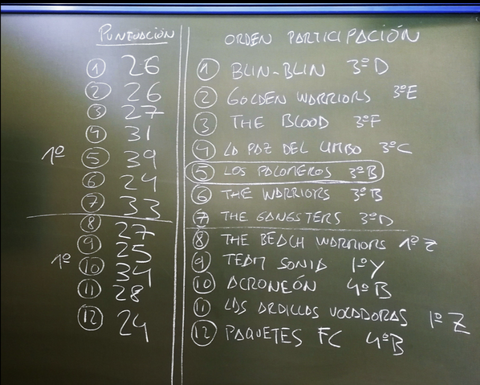 PUNTUACIÓN
① 26
② 26
③ 27
④ 31
1º ⑤ 39
⑥ 24
⑦ 33
⑧ 27
⑨ 25
1º ⑩ 34
⑪ 28
⑫ 24
ORDEN PARTICIPACIÓN
① BLIN-BLIN 3ºD
② GOLDEN WARRIORS 3ºE
③ THE BLOOD 3ºF
④ LA PAZ DEL LIMBO 3ºC
⑤ LOS PALOMEROS 3ºB
⑥ THE WARRIORS 3ºB
⑦ THE GANGSTERS 3ºD
⑧ THE BEACH WARRIORS 1ºZ
⑨ TEAM SONIA 1ºY
⑩ ACRONEÓN 4ºB
⑪ LAS ARDILLAS VOLADORAS 1ºZ
⑫ PAQUETES FC 4ºB